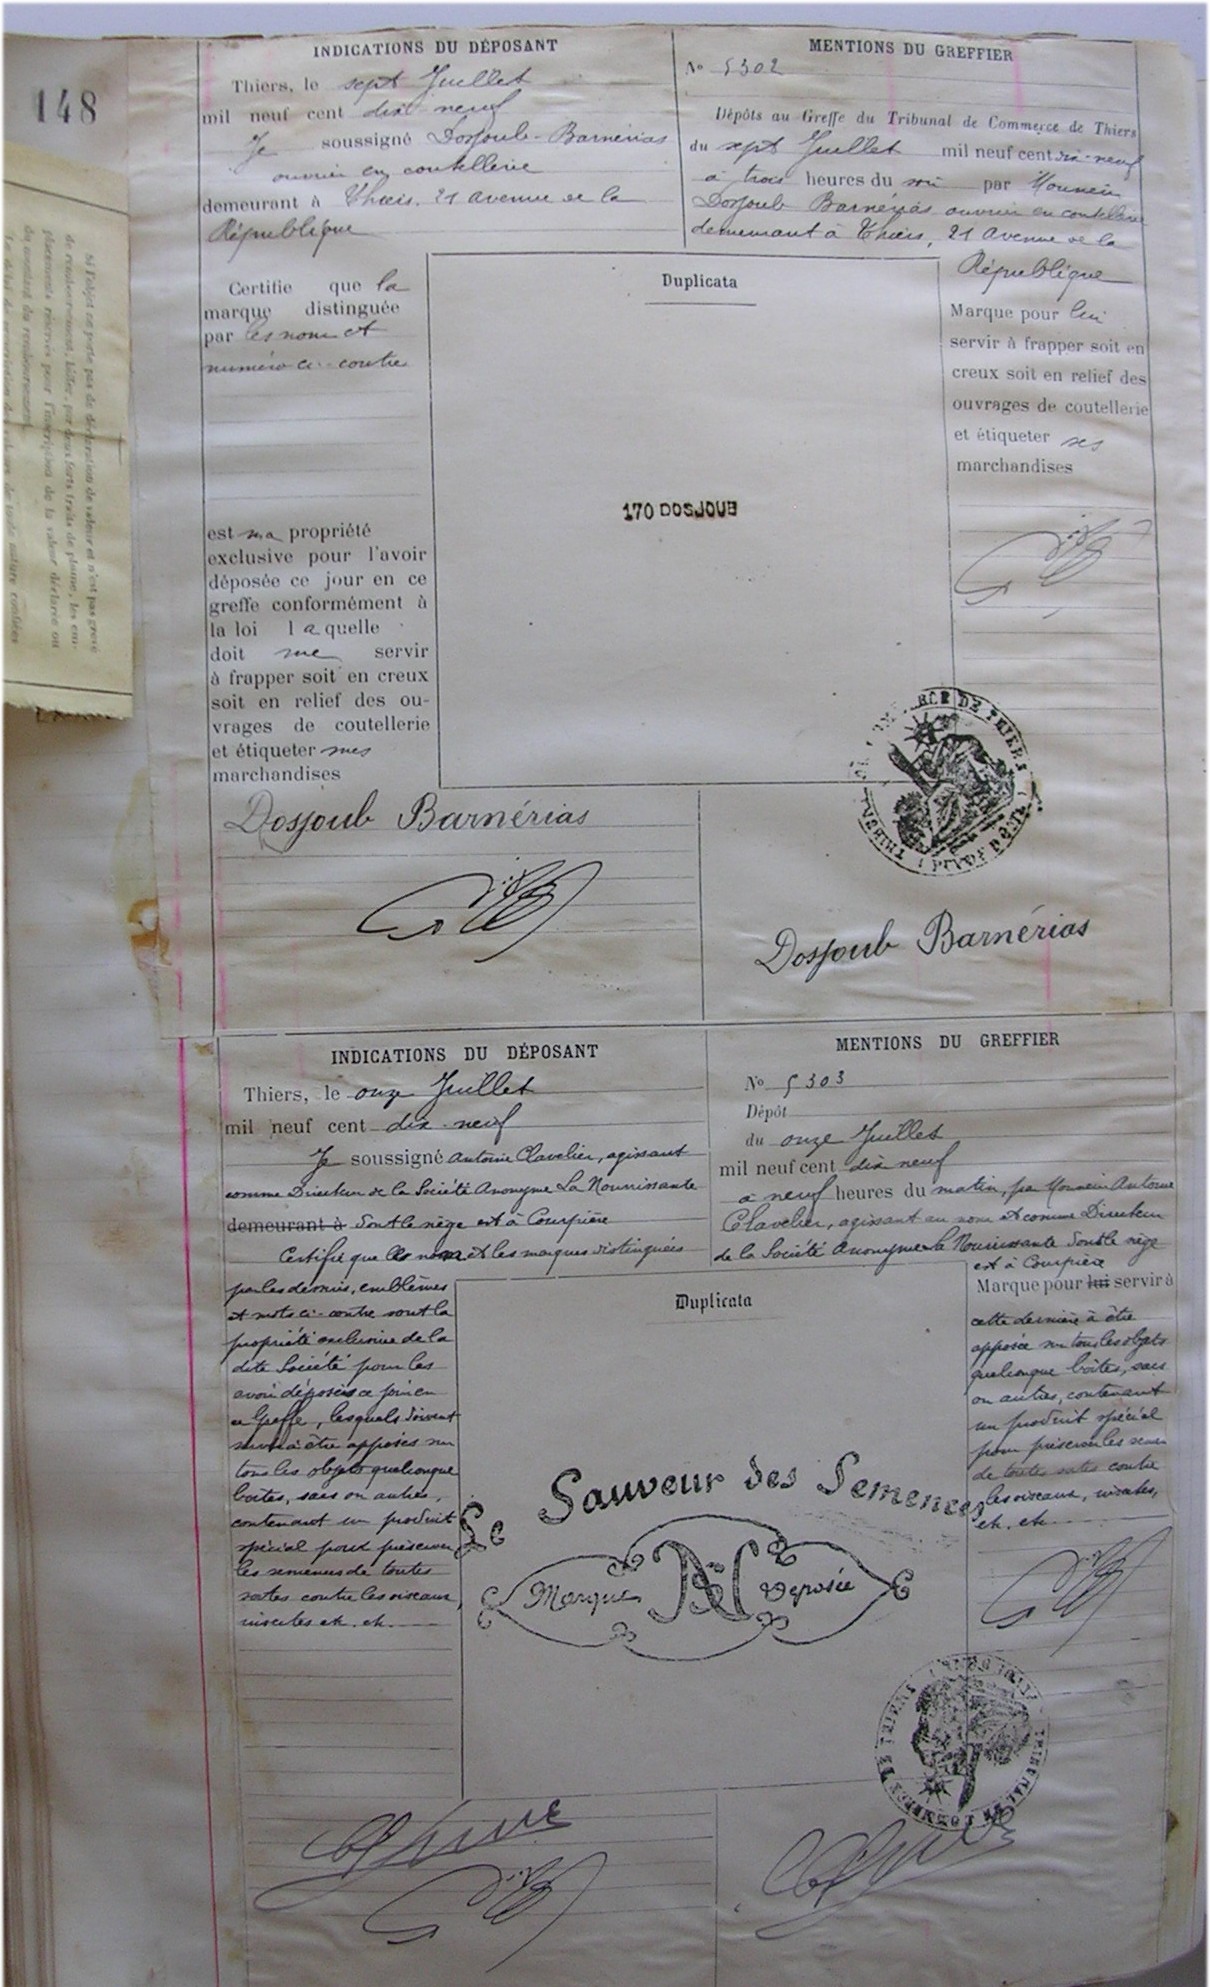 148
INDICATIONS DU DÉPOSANT
Thiers, le sept Juillet
mil neuf cent dix-neuf
Je soussigné Dosjoub-Barnérias
ouvrier en coutellerie
demeurant à Thiers, 21 avenue de la
République
MENTIONS DU GREFFIER
No 5302
Dépôts au Greffe du Tribunal de Commerce de Thiers
du sept Juillet mil neuf cent dix-neuf
à trois heures du soir par Monsieur
Dosjoub Barnérias ouvrier en coutellerie
demeurant à Thiers, 21 avenue de la
République
Certifie que la
marque distinguée
par les nom et
numéro ci-contre
est ma propriété
exclusive pour l'avoir
déposée ce jour en ce
greffe conformément à
la loi laquelle
doit me servir
à frapper soit en creux
soit en relief des ou-
vrages de coutellerie
et étiqueter mes
marchandises
Duplicata
170 DOSJOUB
Marque pour lui
servir à frapper soit en
creux soit en relief des
ouvrages de coutellerie
et étiqueter ses
marchandises
Dosjoub Barnérias
Dosjoub Barnérias
INDICATIONS DU DÉPOSANT
Thiers, le onze Juillet
mil neuf cent dix-neuf
Je soussigné Antoine Clavelier, agissant
comme Directeur de la Société Anonyme La Nourrissante
demeurant à dont le siège est à Courpière
Certifie que les noms et les marques distinguées
par les dessins, emblèmes
et mots ci-contre sont la
propriété exclusive de la
dite Société pour les
avoir déposés ce jour en
ce Greffe, lesquels doivent
servir à être apposés sur
tous les objets quelconque
boîtes, sacs ou autres,
contenant un produit
spécial pour préserver
les semences de toutes
sortes contre les oiseaux,
insectes etc. etc.
MENTIONS DU GREFFIER
No 5303
Dépôt
du onze Juillet
mil neuf cent dix neuf
à neuf heures du matin, par Monsieur Antoine
Clavelier, agissant au nom et comme Directeur
de la Société Anonyme la Nourrissante dont le siège
est à Courpière
Marque pour lui servir à
cette dernière à être
apposée sur tous les objets
quelconque boîtes, sacs
ou autres, contenant
un produit spécial
pour préserver les semences
de toutes sortes contre
les oiseaux, insectes,
etc. etc.
Duplicata
Le Sauveur des Semences
Marque Déposée